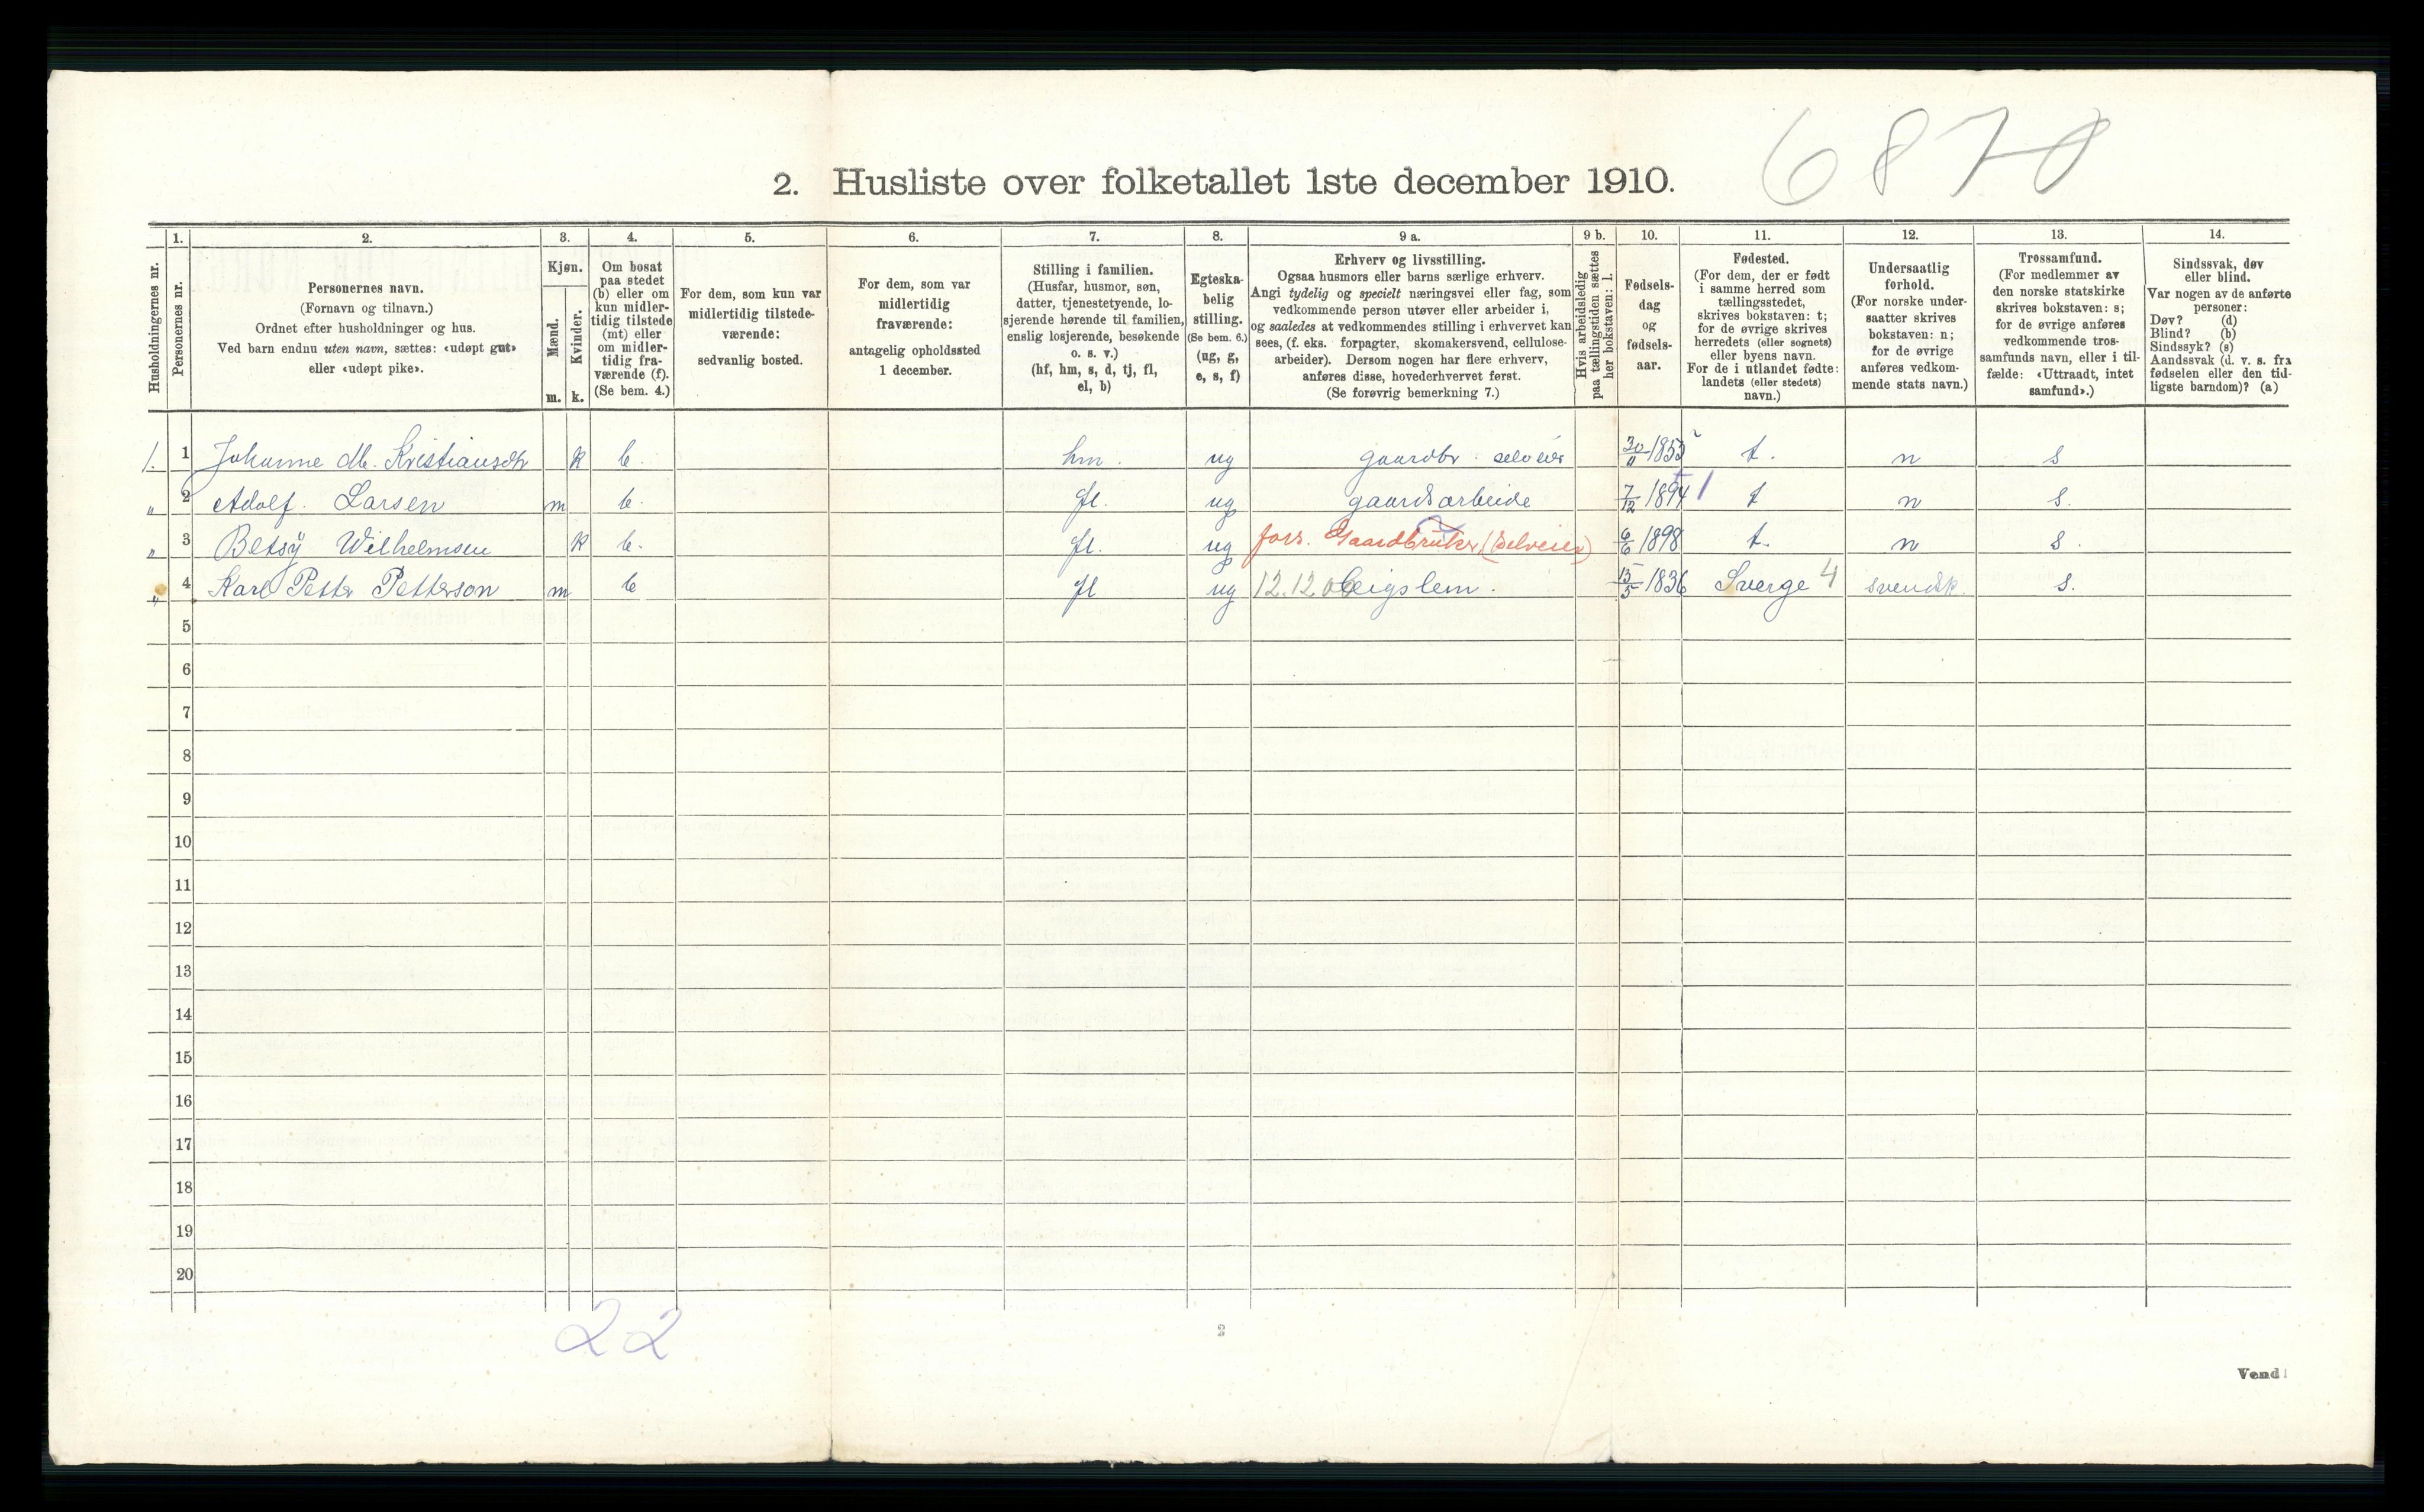 6870
2. Husliste over folketallet 1ste december 1910.
Husholdningernes nr.
1.
Personernes nr.
2.
Personernes navn.
(Fornavn og tilnavn.)
Ordnet efter husholdninger og hus.
Ved barn endnu uten navn, sættes: «udøpt gut»
eller «udøpt pike».
3.
Kjøn.
Mænd.
m.
Kvinder.
k.
4.
Om bosat
paa stedet
(b) eller om
kun midler-
tidig tilstede
(mt) eller
om midler-
tidig fra-
værende (f).
(Se bem. 4.)
5.
For dem, som kun var
midlertidig tilstede-
værende:
sedvanlig bosted.
6.
For dem, som var
midlertidig
fraværende:
antagelig opholdssted
1 december.
7.
Stilling i familien.
(Husfar, husmor, søn,
datter, tjenestetyende, lo-
sjerende hørende til familien,
enslig losjerende, besøkende
o. s. v.)
(hf, hm, s, d, tj, fl,
el, b)
8.
Egteska-
belig
stilling.
(Se bem. 6.)
(ug, g,
e, s, f)
9 a.
Erhverv og livsstilling.
Ogsaa husmors eller barns særlige erhverv.
Angi tydelig og specielt næringsvei eller fag, som
vedkommende person utøver eller arbeider i,
og saaledes at vedkommendes stilling i erhvervet kan
sees, (f. eks. forpagter, skomakersvend, cellulose-
arbeider). Dersom nogen har flere erhverv,
anføres disse, hovederhvervet først.
(Se forøvrig bemerkning 7.)
9 b.
Hvis arbeidsledig
paa tællingstiden sættes
her bokstaven: l.
10.
Fødsels-
dag
og
fødsels-
aar.
11.
Fødested.
(For dem, der er født
i samme herred som
tællingsstedet,
skrives bokstaven: t;
for de øvrige skrives
herredets (eller sognets)
eller byens navn.
For de i utlandet fødte:
landets (eller stedets)
navn.)
12.
Undersaatlig
forhold.
(For norske under-
saatter skrives
bokstaven: n;
for de øvrige
anføres vedkom-
mende stats navn.)
13.
Trossamfund.
(For medlemmer av
den norske statskirke
skrives bokstaven: s;
for de øvrige anføres
vedkommende tros-
samfunds navn, eller i til-
fælde: «Uttraadt, intet
samfund».)
14.
Sindssvak, døv
eller blind.
Var nogen av de anførte
personer:
Døv? (d)
Blind? (b)
Sindssyk? (s)
Aandssvak (d. v. s. fra
fødselen eller den tid-
ligste barndom)? (a)
1. 1 Johanne M. Kristiansdtr k b. hm. ug gaardbr. selveier 30/11 1853 t. n s
" 2 Adolf. Larsen m b. fl. ug gaardsarbeide 7/12 1894 1 t n s.
" 3 Betsÿ Wilhelmsen k b. fl. ug fors. Gaardbruker, (Selveier) 6/6 1898 t. n s.
" 4 Karl Petter Petterson m b fl ug 12.12.06 leigslem. 15/5 1836 Sverge 4 svendsk. s.
5
6
7
8
9
10
11
12
13
14
15
16
17
18
19
20
22
2
Vend!